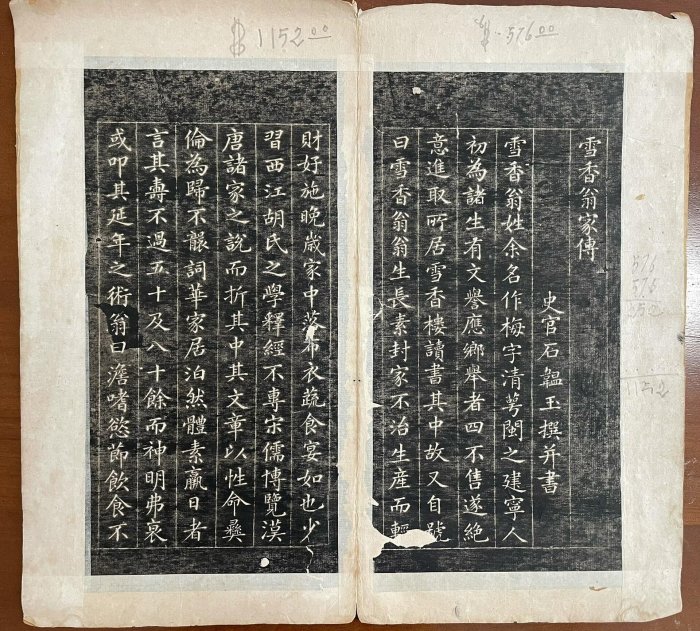 $ 1152 00
$ 576 00
雪香翁家傳
史官石韞玉撰并書
雪香翁姓余名作梅字清萼閩之建寧人
初為諸生有文譽應鄉舉者四不售遂絕
意進取所居雪香樓讀書其中故又自號
曰雪香翁翁生長素封家不治生產而輕
財好施晚歲家中落布衣蔬食宴如也少
習西江胡氏之學釋經不專宋儒博覽漢
唐諸家之說而折其中其文章以性命彝
倫為歸不詞華家居泊然體素羸日者
言其壽不過五十及八十餘而神明弗衰
或叩其延年之術翁曰澹嗜慾節飲食不
576
576
1152